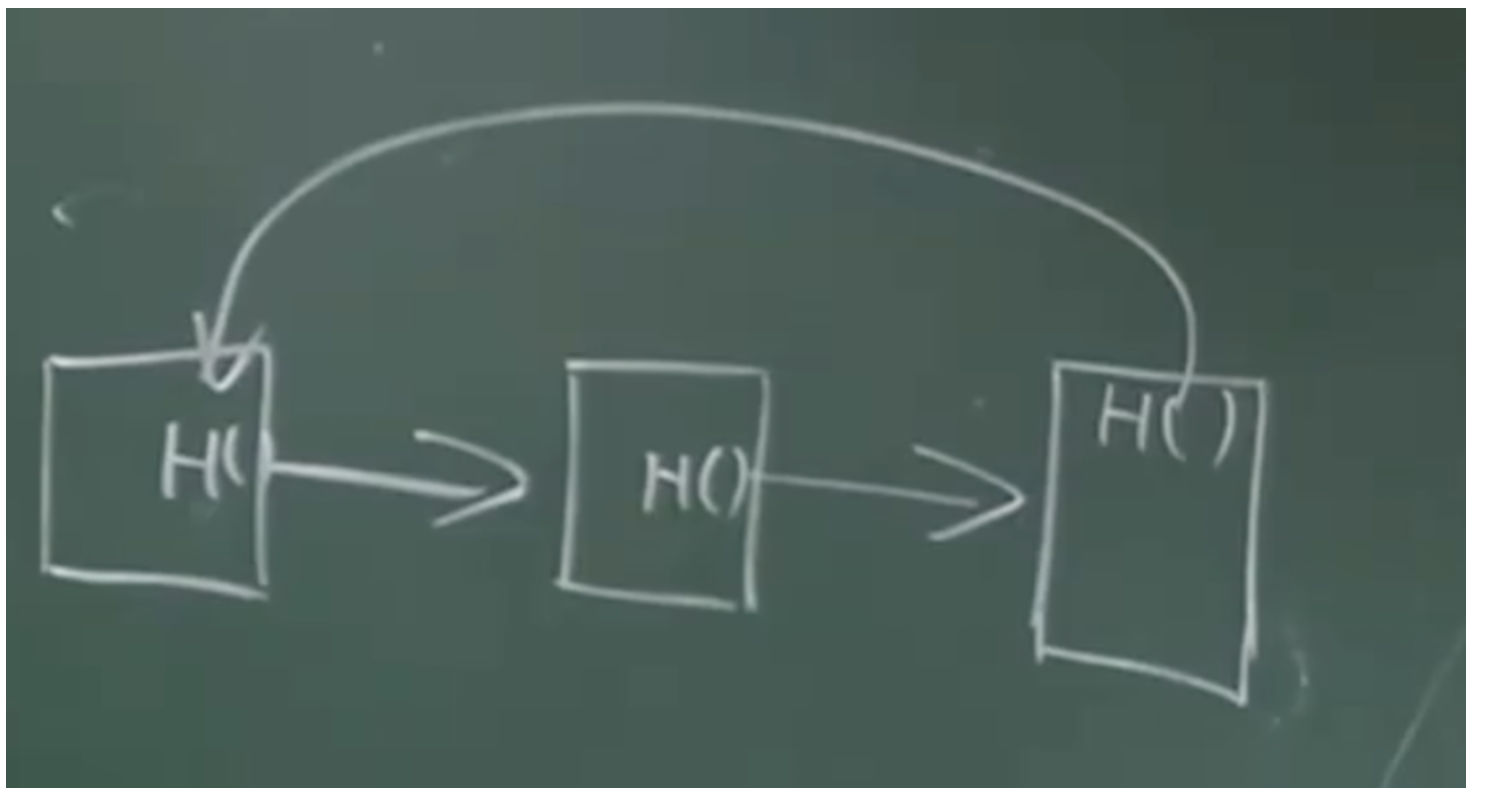 H(
H()
H()